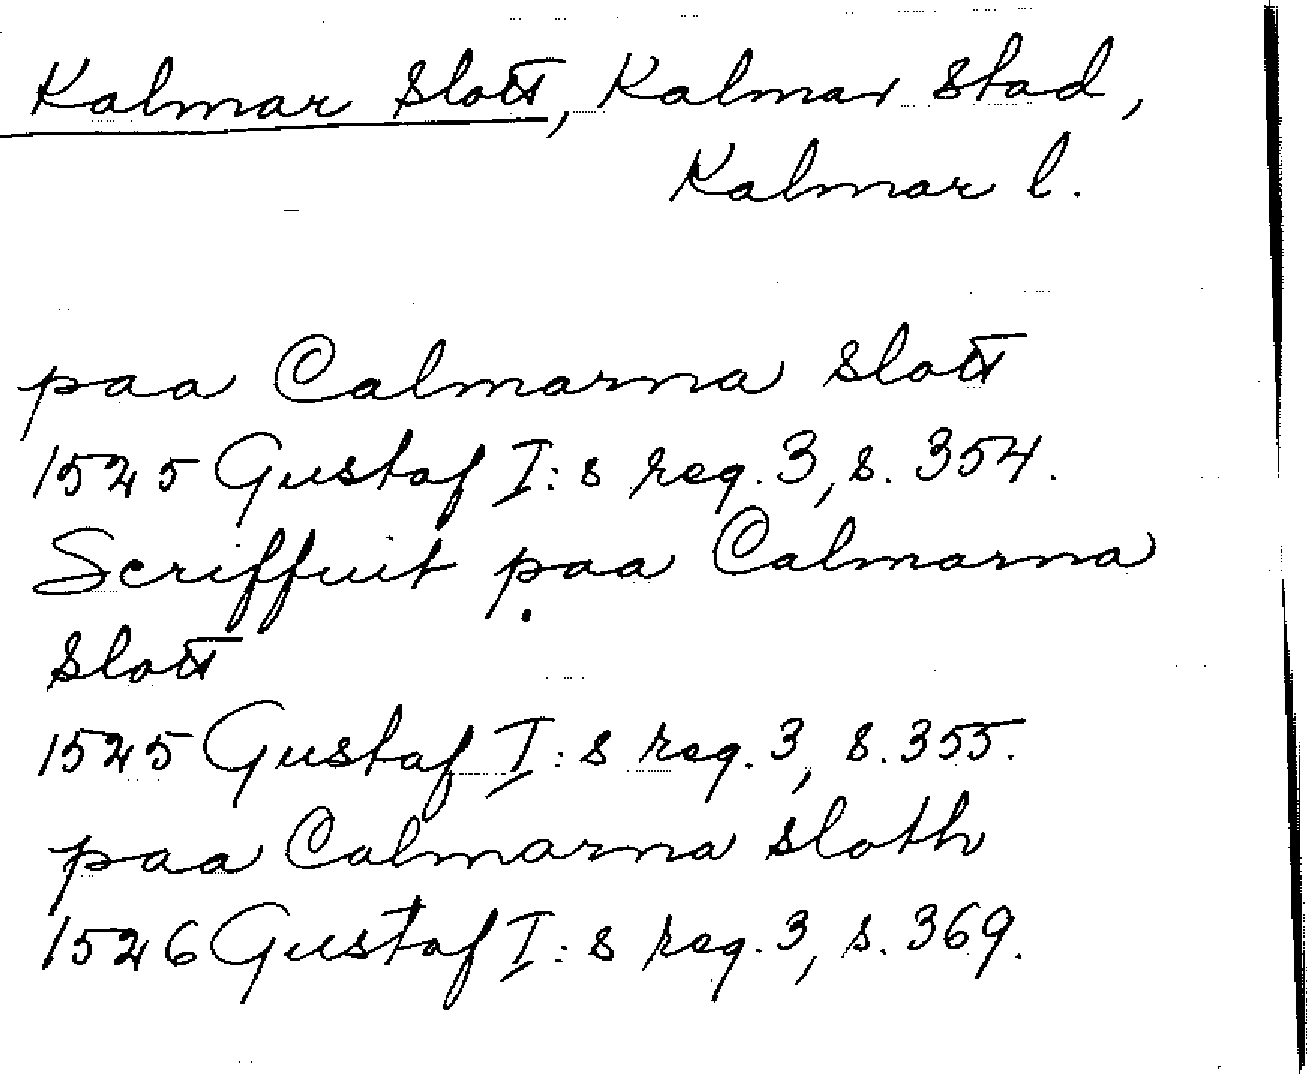 Kalmar Slott, Kalmar stad,
Kalmar l.
paa Calmarna slott
1525 Gustaf I:s reg. 3, s. 354.
Scriffuit paa Calmarna
slott
1525 Gustaf I:s reg. 3, s. 355.
paa Calmarna sloth
1526 Gustaf I:s reg. 3, s. 369.